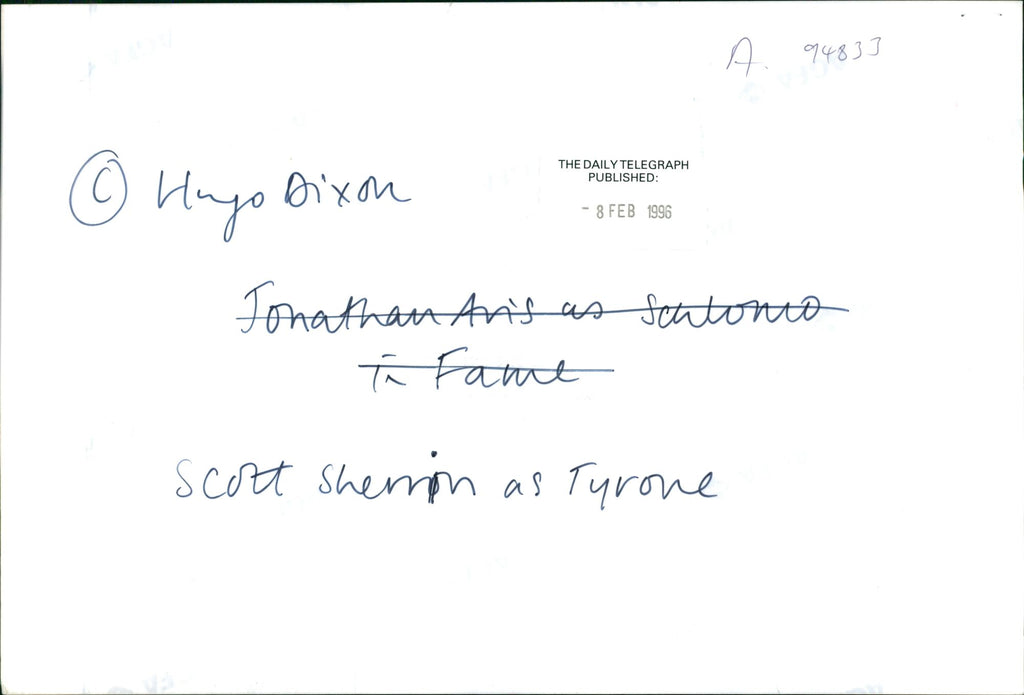 A. 94833
THE DAILY TELEGRAPH
PUBLISHED:
© Hugo Dixon
- 8 FEB 1996
Jonathan Aris as Schlomo
in Fame
Scott Sherrin as Tyrone